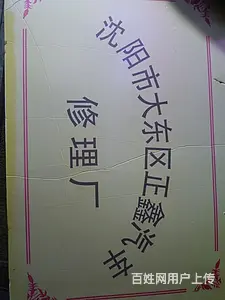 沈阳市大东区正鑫汽车
修理厂
百姓网用户上传